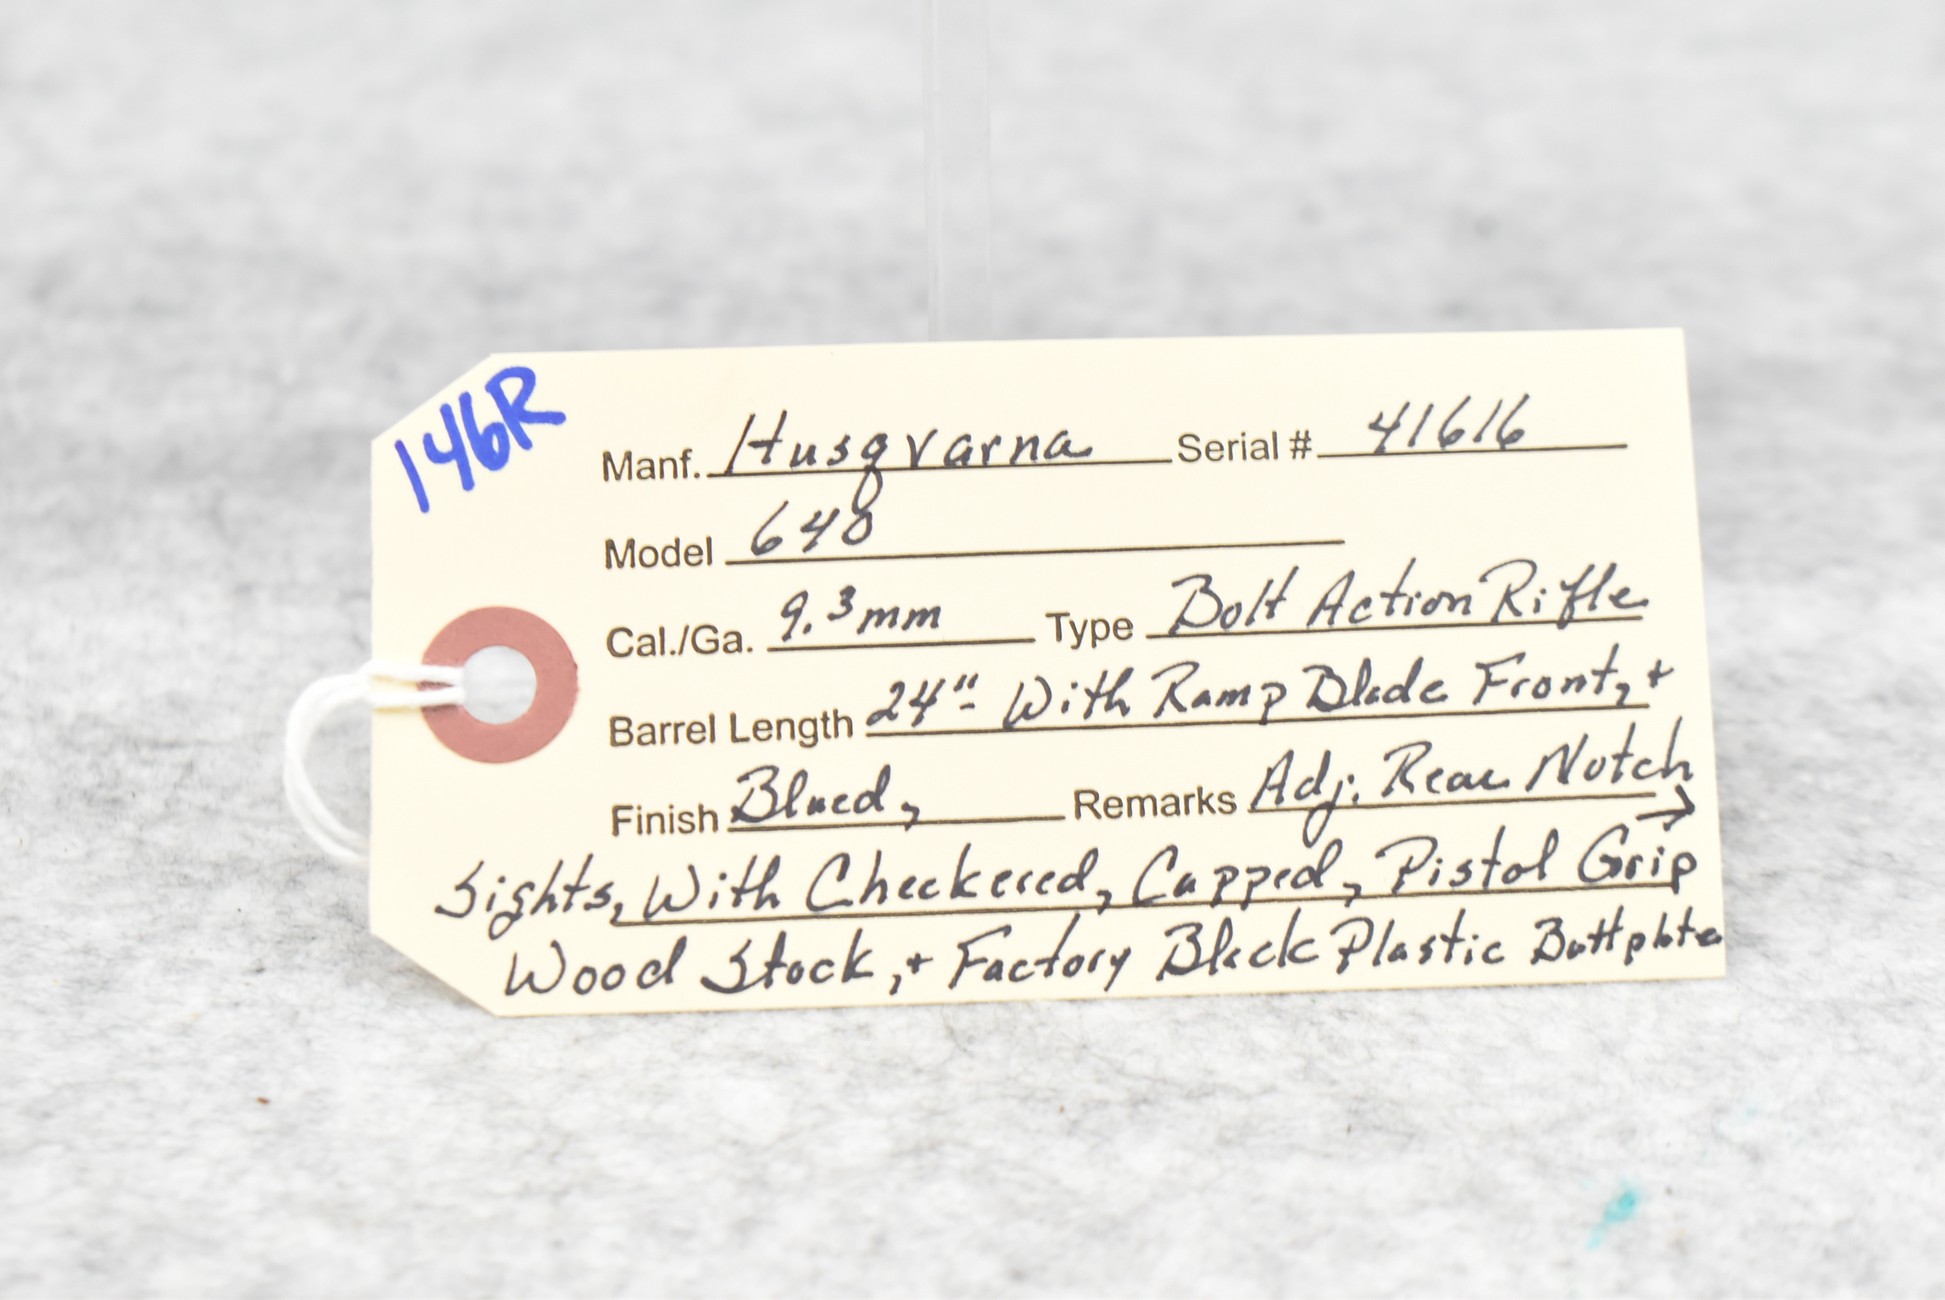 146R
Manf. Husqvarna Serial # 41616
Model 648
Cal./Ga. 9.3mm Type Bolt Action Rifle
Barrel Length 24" - With Ramp Blade Front, +
Finish Blued, Remarks Adj. Rear Notch →
Sights, With Checkered, Capped, Pistol Grip
Wood Stock, + Factory Black Plastic Buttplate